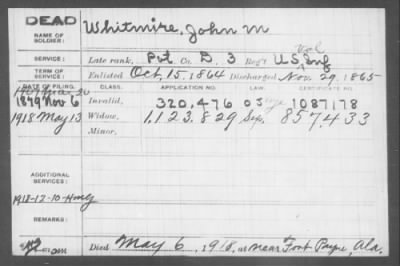 DEAD
NAME OF SOLDIER: Whitmire, John M
SERVICE: Late rank, Pvt. Co. D. 3 Reg't U.S. Vol Inf
TERM OF SERVICE: Enlisted Oct. 15, 1864 Discharged Nov. 29, 1865
DATE OF FILING. CLASS. APPLICATION NO. LAW. CERTIFICATE NO.
1879 Nov 6 Invalid, 320,476 1087178
1918 May 13 Widow, 1,123,829 857,433
Minor,
ADDITIONAL SERVICES:
1918-12-10-
REMARKS:
Died May 6, 1918, at near Fort Payne, Ala.